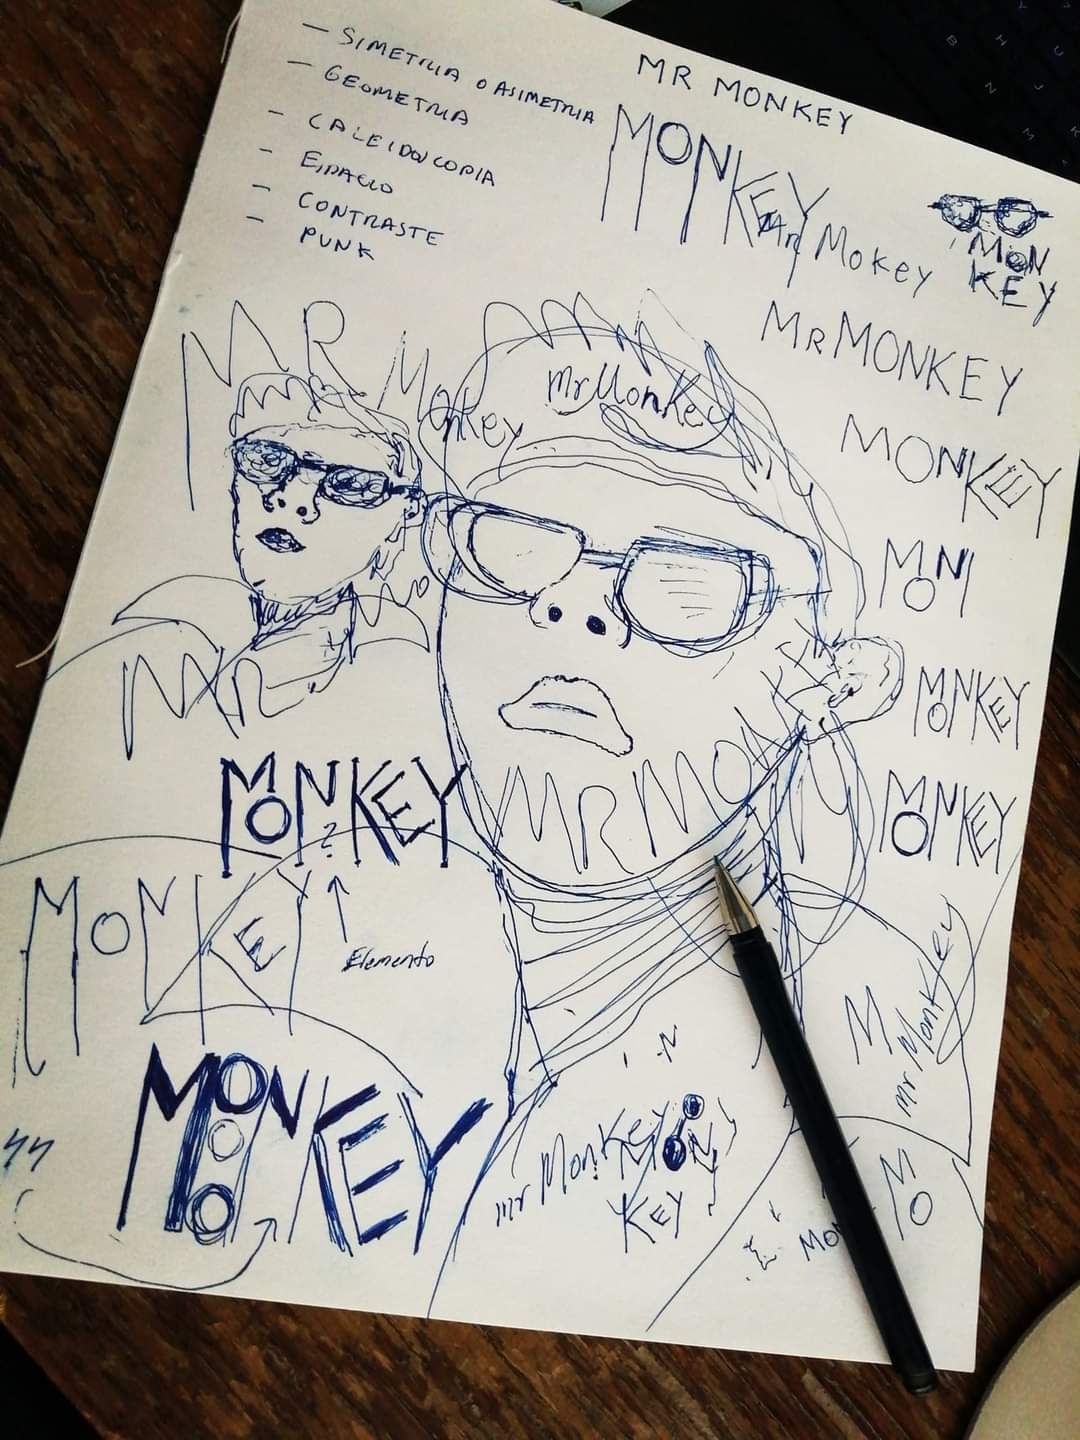 - SIMETRIA O ASIMETRIA
- GEOMETRIA
- CALEIDOSCOPIA
- ESPACIO
- CONTRASTE
- PUNK
MR MONKEY
MONKEY
Mr Mokey
MON
KEY
MR MONKEY
MONKEY
MON
MONKEY
MONKEY
MR
Monkey
mr Monkey
Mr
MR MONKEY
MONKEY
?
Elemento
MONKEY
MONKEY
mr Monkey
KEY
M
mr Monkey
MO
MO